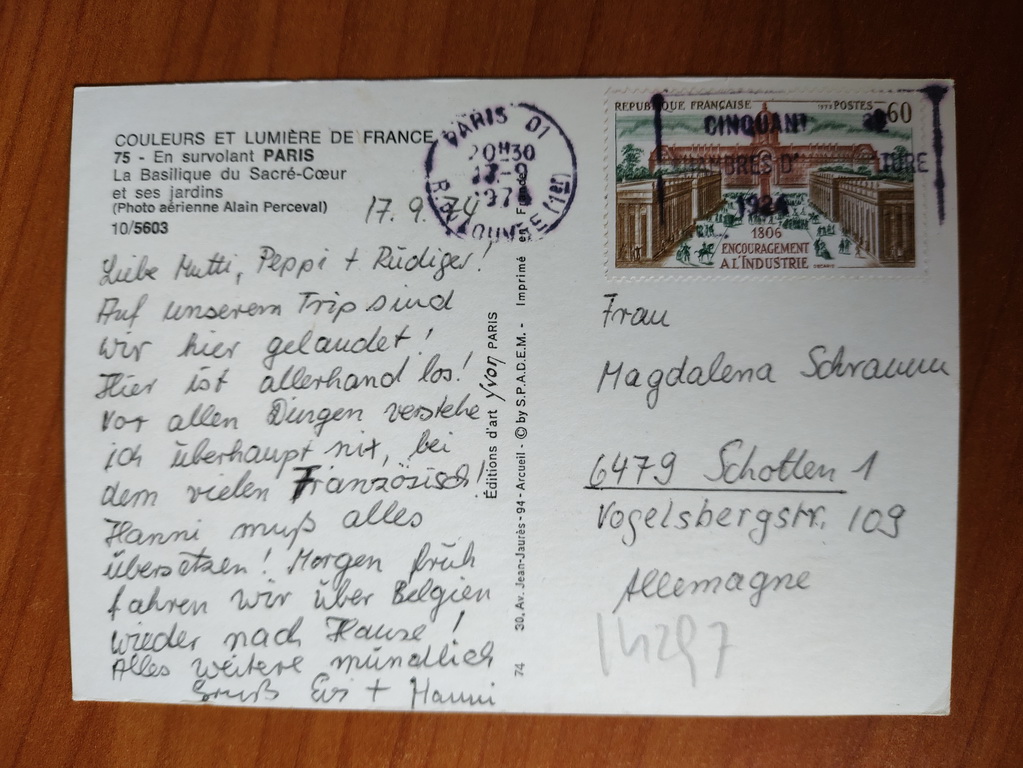 COULEURS ET LUMIÈRE DE FRANCE
75 - En survolant PARIS
La Basilique du Sacré-Cœur
et ses jardins
(Photo aérienne Alain Perceval)
10/5603
17. 9. 74
Liebe Mutti, Peppi + Rüdiger!
Auf unserem Trip sind
wir hier gelandet!
Hier ist allerhand los!
Vor allen Dingen verstehe
ich überhaupt nix, bei
dem vielen Französisch!
Hanni muß alles
übersetzen! Morgen früh
fahren wir über Belgien
wieder nach Hause!
Alles weitere mündlich
Gruß Evi + Hanni
Éditions d'art Yvon PARIS
74 30, Av. Jean-Jaurès - 94 - Arcueil - © by S.P.A.D.E.M. - Imprimé en
PARIS 01
20H30
17-9
1974
R. DU LOUVRE (1er)
REPUBLIQUE FRANÇAISE 1973 POSTES 0,60
CINQUANT
CHAMBRES D'
1924
1806
ENCOURAGEMENT
A L'INDUSTRIE
Frau
Magdalena Schramm
6479 Schotten 1
Vogelsbergstr. 109
Allemagne